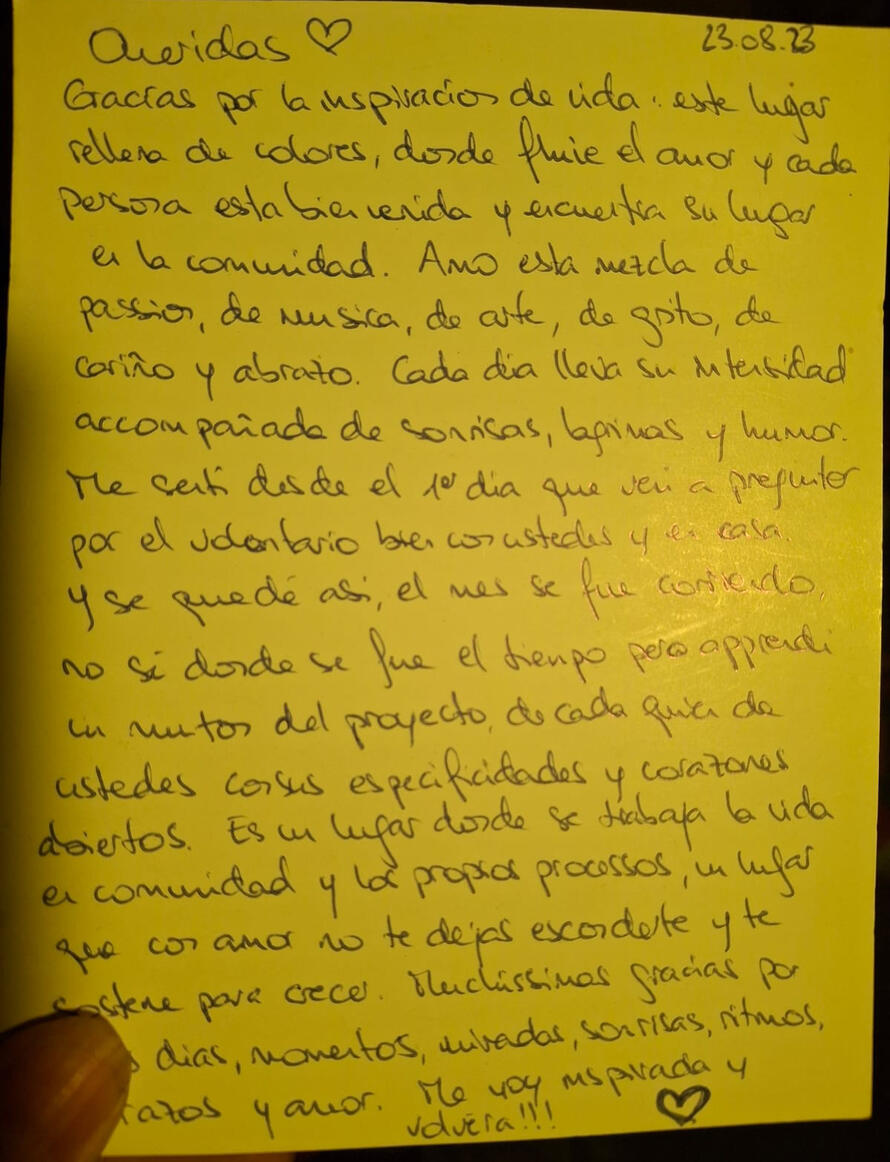 Queridas ♡ 23.08.23
Gracias por la inspiracion de vida: este lugar
rellena de colores, donde fluie el amor y cada
persona esta bienvenida y encuentra su lugar
en la comunidad. Amo esta mezcla de
passion, de musica, de arte, de grito, de
cariño y abrazo. Cada dia lleva su intensidad
accompañada de sonrisas, lagrimas y humor.
Me senti desde el 1er dia que veni a preguntar
por el volontario bien con ustedes y en casa.
y se quedé asi, el mes se fue corriendo,
no sé donde se fue el tiempo pero apprendi
un monton del proyecto, de cada quien de
ustedes con sus especificidades y corazones
abiertos. Es un lugar donde se trabaja la vida
en comunidad y los propios processos, un lugar
que con amor no te dejas esconderte y te
sostene para crecer. Muchissimas gracias por
dias, momentos, miradas, sonrisas, ritmos,
razos y amor. Me voy inspirada y
volvera!!! ♡